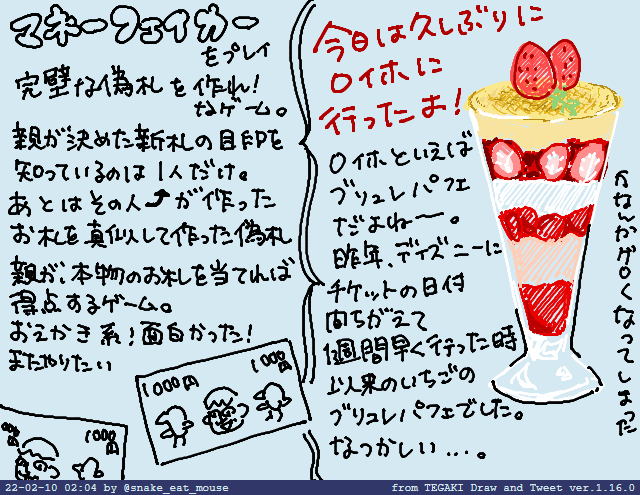 マネーフェイカー
をプレイ
完璧な偽札を作れ!
なゲーム。
親が決めた新札の目印を
知っているのは1人だけ。
あとはその人が作った
お札を真似して作った偽札
親が、本物のお札を当てれば
得点するゲーム。
おえかき系!面白かった!
またやりたい
1000円
1000円
1000円
今日は久しぶりに
ロイホに
行ったよ!
ロイホといえば
ブリュレパフェ
だよねー。
昨年、ディズニーに
チケットの日付
間ちがえて
1週間早く行った時
以来のいちごの
ブリュレパフェでした。
なつかしい…。
かなんかゲロくなってしまった
22-02-10 02:04 by @snake_eat_mouse
from TEGAKI Draw and Tweet ver.1.16.0